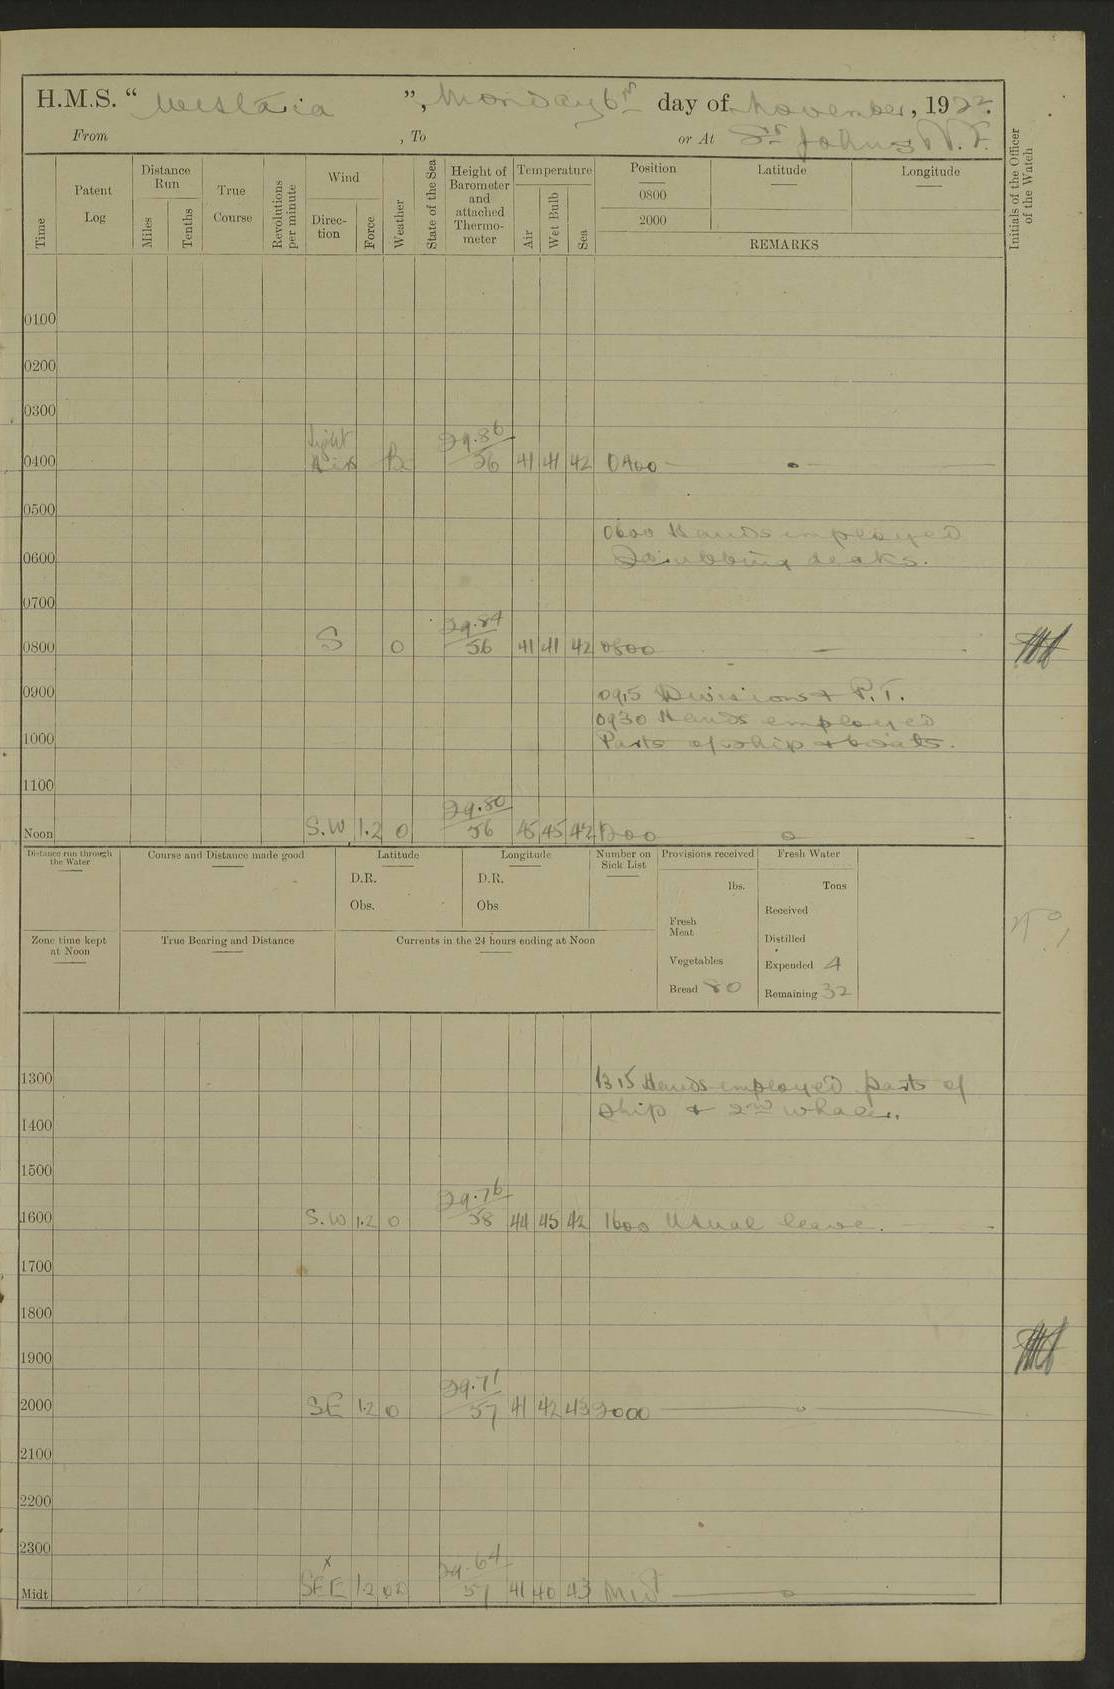 H.M.S. “Wistaria”, Monday 6th day of November, 1922.
From , To or At St Johns N.F.
Time
Patent Log
Distance Run
Miles
Tenths
True Course
Revolutions per minute
Wind
Direction
Force
Weather
State of the Sea
Height of Barometer and attached Thermometer
Temperature
Air
Wet Bulb
Sea
Position
0800
2000
Latitude
Longitude
REMARKS
Initials of the Officer of the Watch
0100
0200
0300
light 29.86
0400 Airs B 56 41 41 42 0400
0500
0600 Hands employed
0600 Scrubbing decks.
0700
29.84
0800 S 0 56 41 41 42 0800
0900 0915 Divisions & P.T.
0930 Hands employed
1000 Parts of ship & boats.
1100
29.80
Noon S.W 1.2 0 56 45 45 42 1200
Distance run through the Water
Course and Distance made good
Latitude
D.R.
Obs.
Longitude
D.R.
Obs
Number on Sick List
Provisions received
lbs.
Fresh Meat
Vegetables
Bread 80
Fresh Water
Tons
Received
Distilled
Expended 4
Remaining 32
Zone time kept at Noon
True Bearing and Distance
Currents in the 24 hours ending at Noon
1300 1315 Hands employed parts of
ship & 2nd whaler.
1400
1500
29.76
1600 S.W 1.2 0 58 44 45 42 1600 Usual leave.
1700
1800
1900
29.71
2000 SE 1.2 0 57 41 42 43 2000
2100
2200
2300
x 29.64
Midt SEE 1.2 57 41 40 43 Midt